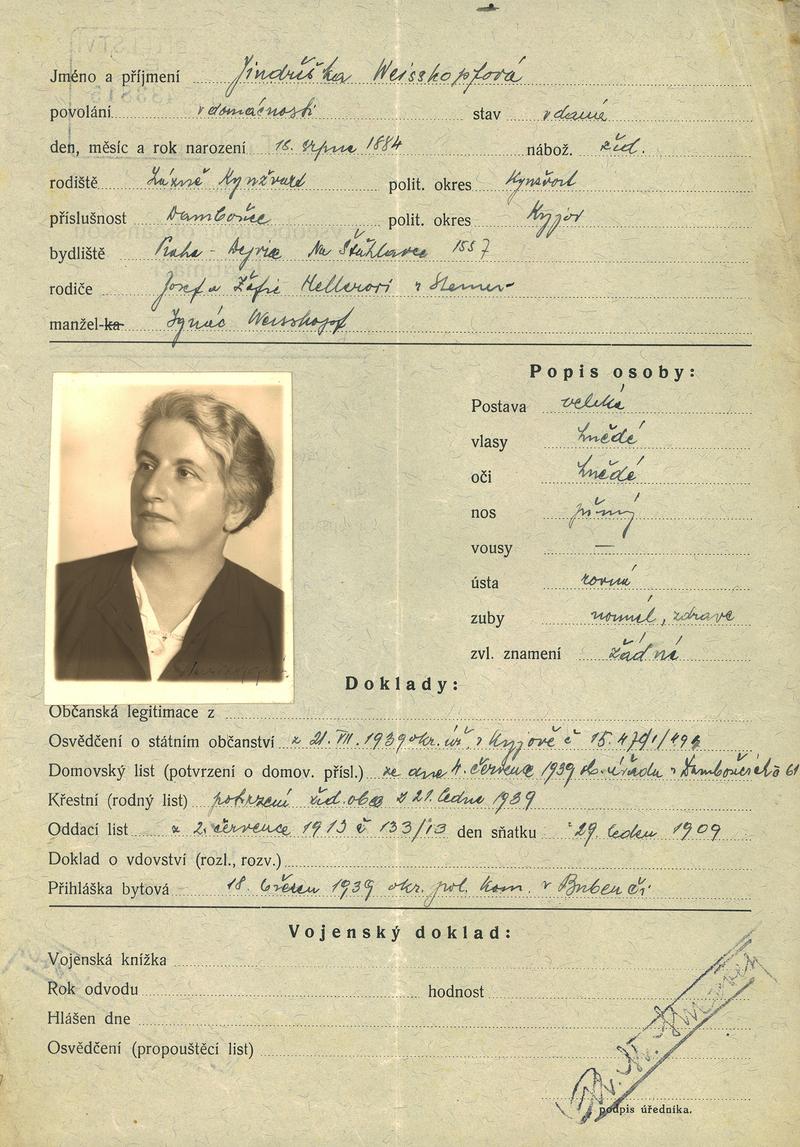 Jméno a příjmení Jindřiška Weisskopfová
povolání v domácnosti stav vdaná
den, měsíc a rok narození 18. srpna 1884 nábož. žid.
rodiště Lázně Kynžvart polit. okres Kynžvart
příslušnost Dambořice polit. okres Kyjov
bydliště Praha - Dejvice Na Šťáhlavce 1557
rodiče Josef a Žofie Hellerovi
manžel-ka Ignác Weisskopf
Popis osoby:
Postava veliká
vlasy hnědé
oči hnědé
nos přímý
vousy —
ústa rovná
zuby normál, zdravé
zvl. znamení žádné
Doklady:
Občanská legitimace z
Osvědčení o státním občanství z 21. VII. 1939 okr. úř. v Kyjově č
Domovský list (potvrzení o domov. přísl.) ze dne 4. července 1939
Křestní (rodný list) potvrzení žid. obce z 21. ledna 1939
Oddací list z 2. července 1913 č 133/13 den sňatku 29 ledna 1909
Doklad o vdovství (rozl., rozv.)
Přihláška bytová 18. března 1939 okr. pol. kom. v Bubenči
Vojenský doklad:
Vojenská knížka
Rok odvodu hodnost
Hlášen dne
Osvědčení (propouštěcí list)
podpis úředníka.